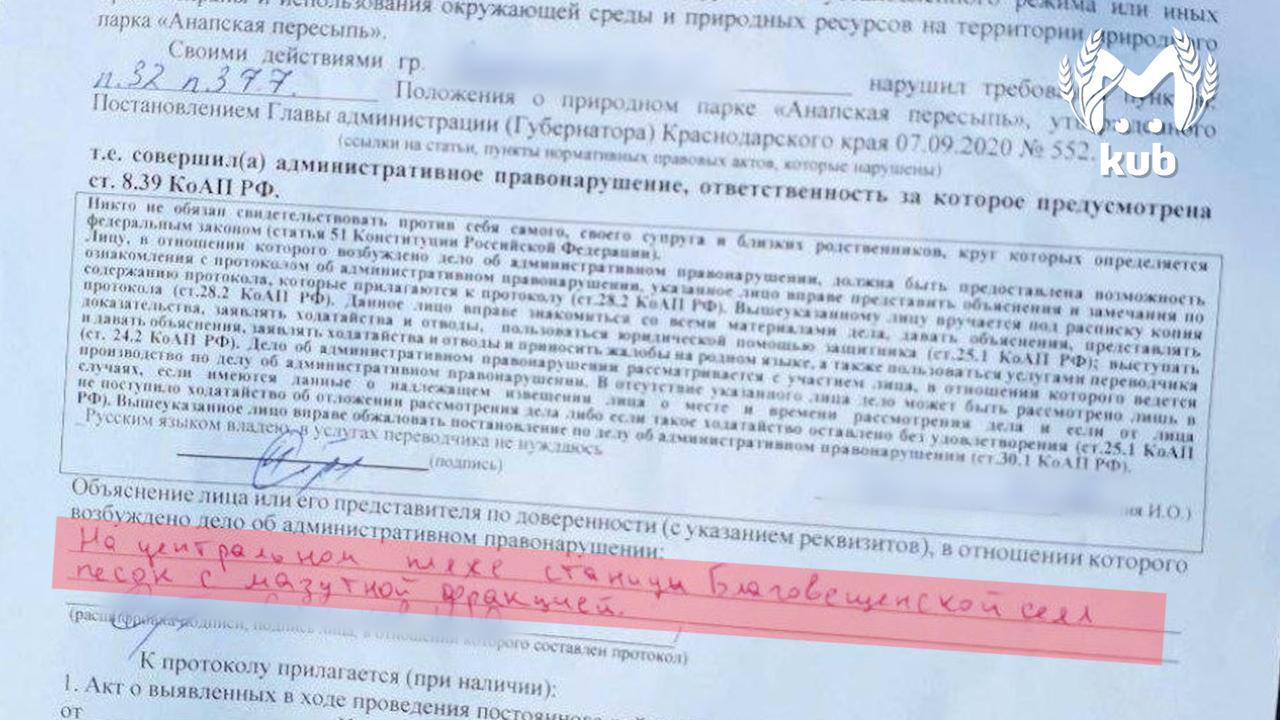 использования окружающей среды и природных ресурсов на территории природного
режима или иных
парка «Анапская пересыпь».
Своими действиями гр. нарушил требов пунк
п.32 п.37.7.
Положения о природном парке «Анапская пересыпь», ут
Постановлением Главы администрации (Губернатора) Краснодарского края 07.09.2020 № 552.
(ссылки на статьи, пункты нормативных правовых актов, которые нарушены)
т.е. совершил(а) административное правонарушение, ответственность за которое предусмотрена
ст. 8.39 КоАП РФ.
Никто не обязан свидетельствовать против себя самого, своего супруга и близких родственников, круг которых определяется
федеральным законом (статья 51 Конституции Российской Федерации).
Лицу, в отношении которого возбуждено дело об административном правонарушении, должна быть предоставлена возможность
ознакомления с протоколом об административном правонарушении, указанное лицо вправе представить объяснения и замечания по
содержанию протокола, которые прилагаются к протоколу (ст.28.2 КоАП РФ). Вышеуказанному лицу вручается под расписку копия
протокола (ст.28.2 КоАП РФ). Данное лицо вправе знакомиться со всеми материалами дела, давать объяснения, представлять
доказательства, заявлять ходатайства и отводы, пользоваться юридической помощью защитника (ст.25.1 КоАП РФ); выступать
и давать объяснения, заявлять ходатайства и отводы и приносить жалобы на родном языке, а также пользоваться услугами переводчика
(ст. 24.2 КоАП РФ). Дело об административном правонарушении рассматривается с участием лица, в отношении которого ведется
производство по делу об административном правонарушении. В отсутствие указанного лица дело может быть рассмотрено лишь в
случаях, если имеются данные о надлежащем извещении лица о месте и времени рассмотрения дела и если от лица
не поступило ходатайство об отложении рассмотрения дела либо если такое ходатайство оставлено без удовлетворения (ст.25.1 КоАП
РФ). Вышеуказанное лицо вправе обжаловать постановление по делу об административном правонарушении (ст.30.1 КоАП РФ).
Русским языком владею, в услугах переводчика не нуждаюсь
(подпись)
И.О.)
Объяснение лица или его представителя по доверенности (с указанием реквизитов), в отношении которого
возбуждено дело об административном правонарушении:
На центральном пляже станицы Благовещенской сеял
песок с мазутной фракцией.
(расшифровка подписи, подпись лица, в отношении которого составлен протокол)
К протоколу прилагается (при наличии):
1. Акт о выявленных в ходе проведения постоянного
от
kub